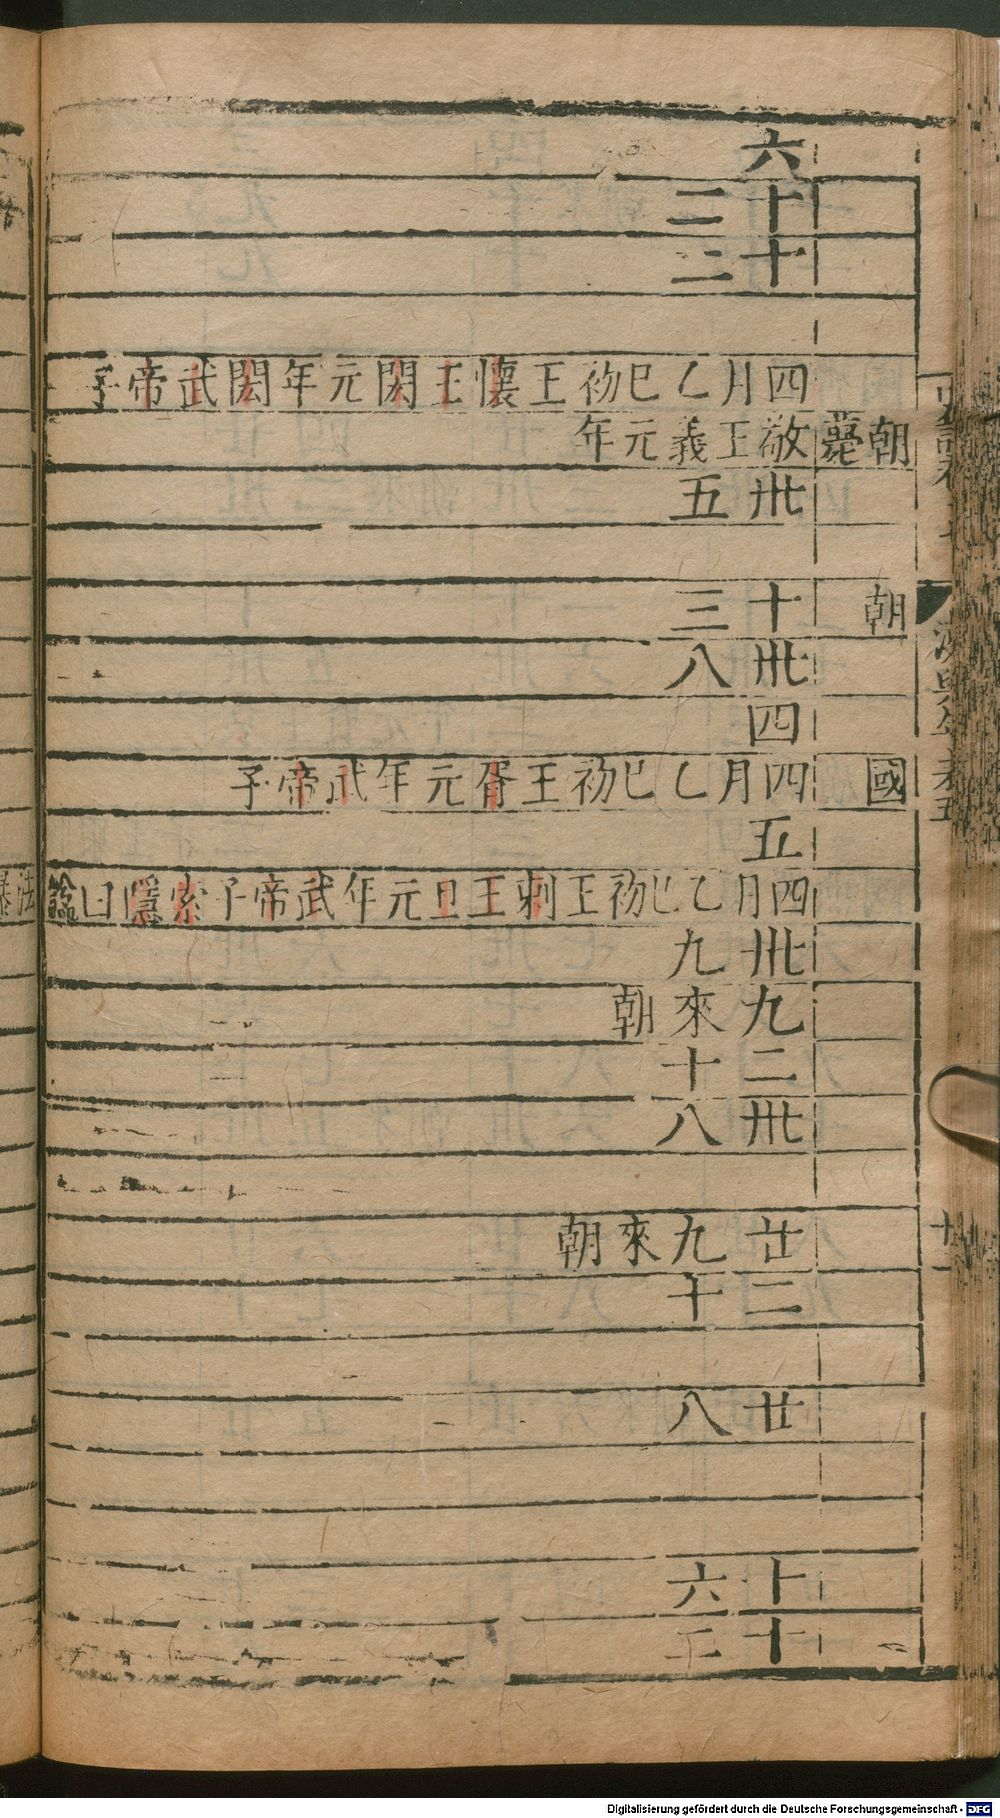 六
十二
十二
四月乙巳初王懷王閎元年閎武帝子
朝薨 敬王義元年
卅五
朝 十三
卅八
四
國 四月乙巳初王胥元年武帝子
五
四月乙巳初王剌王旦元年武帝子索隱曰謚法暴
卅九
九來朝
二十
卅八
廿九來朝
二十
廿八
十六
十二
漢興年表五
Digitalisierung gefördert durch die Deutsche Forschungsgemeinschaft - DFG